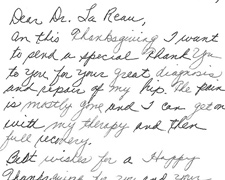 Dear Dr. La Reau,
On this Thanksgiving I want
to send a special Thank You
to you for your great diagnosis
and repair of my hip. The pain
is mostly gone and I can get on
with my therapy and then
full recovery.
Best wishes for a Happy
Thanksgiving to you and your